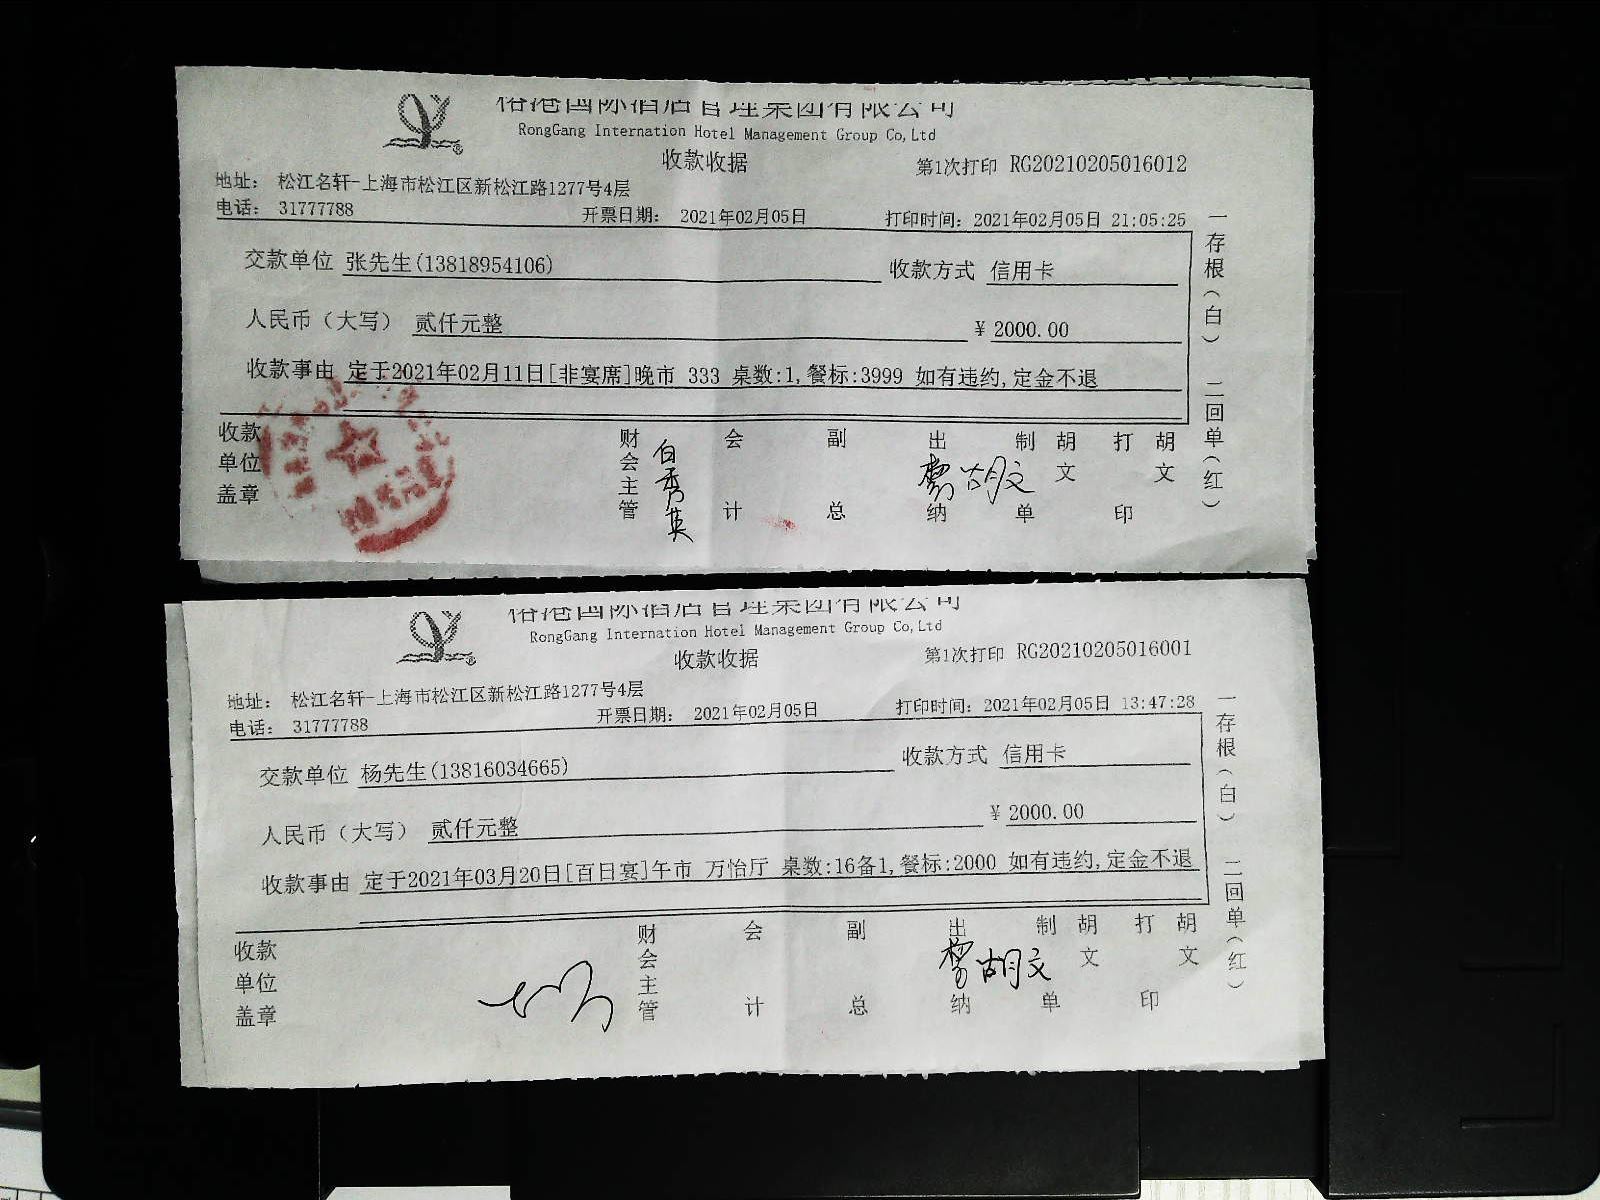 裕港国际酒店管理集团有限公司
RongGang Internation Hotel Management Group Co,Ltd
收款收据
第1次打印 RG20210205016012
地址： 松江名轩-上海市松江区新松江路1277号4层
电话： 31777788 开票日期： 2021年02月05日 打印时间：2021年02月05日 21:05:25
交款单位 张先生(13818954106) 收款方式 信用卡
人民币（大写） 贰仟元整 ¥ 2000.00
收款事由 定于2021年02月11日[非宴席]晚市 333 桌数:1,餐标:3999 如有违约,定金不退
收款单位盖章 财会主管 白秀英 会计 副总 出纳 胡文 制单 胡文 打印 胡文
一存根（白） 二回单（红）
裕港国际酒店管理集团有限公司
RongGang Internation Hotel Management Group Co,Ltd
收款收据
第1次打印 RG20210205016001
地址： 松江名轩-上海市松江区新松江路1277号4层
电话： 31777788 开票日期： 2021年02月05日 打印时间：2021年02月05日 13:47:28
交款单位 杨先生(13816034665) 收款方式 信用卡
人民币（大写） 贰仟元整 ¥ 2000.00
收款事由 定于2021年03月20日[百日宴]午市 万怡厅 桌数:16备1,餐标:2000 如有违约,定金不退
收款单位盖章 财会主管 会计 副总 出纳 胡文 制单 胡文 打印 胡文
一存根（白） 二回单（红）